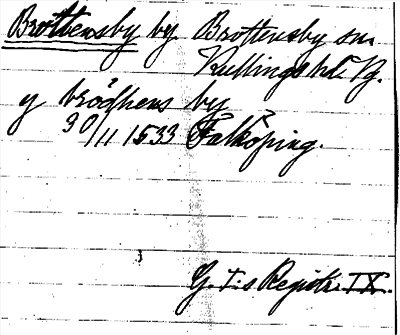 Brottensby by Brottensby sn.
Kullings hd. Bg.
y brödhens by
30/11 1533 Falköping.
G. I:s Registr. IX.